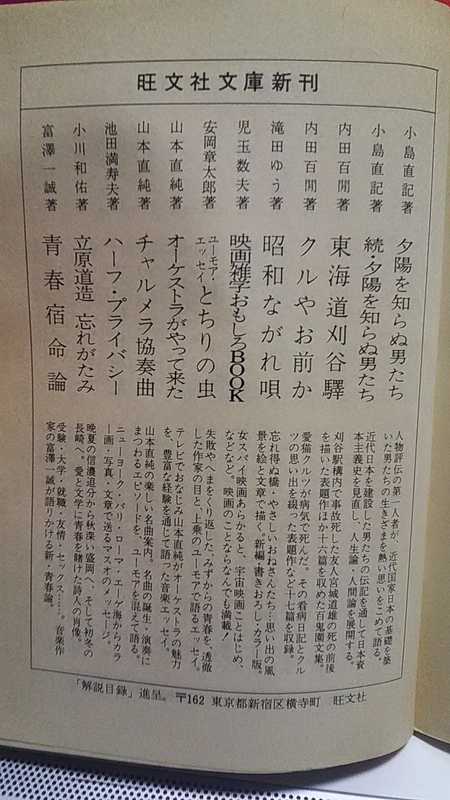 旺文社文庫新刊
小島直記著
夕陽を知らぬ男たち
人物評伝の第一人者が、近代国家日本の基礎を築
いた男たちの生きざまを熱い思いをこめて語る。
小島直記著
続・夕陽を知らぬ男たち
近代日本を建設した男たちの伝記を通して日本資
本主義史を見直し、人生論・人間論を展開する。
内田百閒著
東海道刈谷驛
刈谷駅構内で事故死した友人宮城道雄の死の前後
を描いた表題作ほか十六篇を収めた百鬼園文集。
内田百閒著
クルやお前か
愛猫クルツが病気で死んだ。その看病日記とクル
ツの思い出を綴った表題作など十七篇を収録。
滝田ゆう著
昭和ながれ唄
忘れ得ぬ橋・やさしいおねさんたち…思い出の風
景を絵と文章で描く。新編・書きおろし・カラー版。
児玉数夫著
映画雑学おもしろBOOK
女スパイ映画あらかると、宇宙映画ことはじめ、
などなど。映画のことならなんでも満載！
安岡章太郎著
ユーモア・
エッセイ
とちりの虫
失敗やへまをくり返した、みずからの青春を、透徹
した作家の目と、上乗のユーモアで語るエッセイ。
山本直純著
オーケストラがやって来た
テレビでおなじみ山本直純がオーケストラの魅力
を、豊富な経験を通じて語った音楽エッセイ。
山本直純著
チャルメラ協奏曲
山本直純の楽しい名曲案内。名曲の誕生・演奏に
まつわるエピソードを、ユーモアを混えて語る。
池田満寿夫著
ハーフ・プライバシー
ニューヨーク・パリ・ローマ・エーゲ海からカラ
ー画・写真・文章で送るマスオのメッセージ。
小川和佑著
立原道造 忘れがたみ
晩夏の信濃追分から秋深い盛岡へ、そして初冬の
長崎へ。愛と文学に青春を賭けた詩人の肖像。
富澤一誠著
青春宿命論
受験・大学・就職・友情・セックス……。音楽作
家の富澤一誠が語りかける新・青春論。
「解説目録」進呈。〒162 東京都新宿区横寺町 旺文社